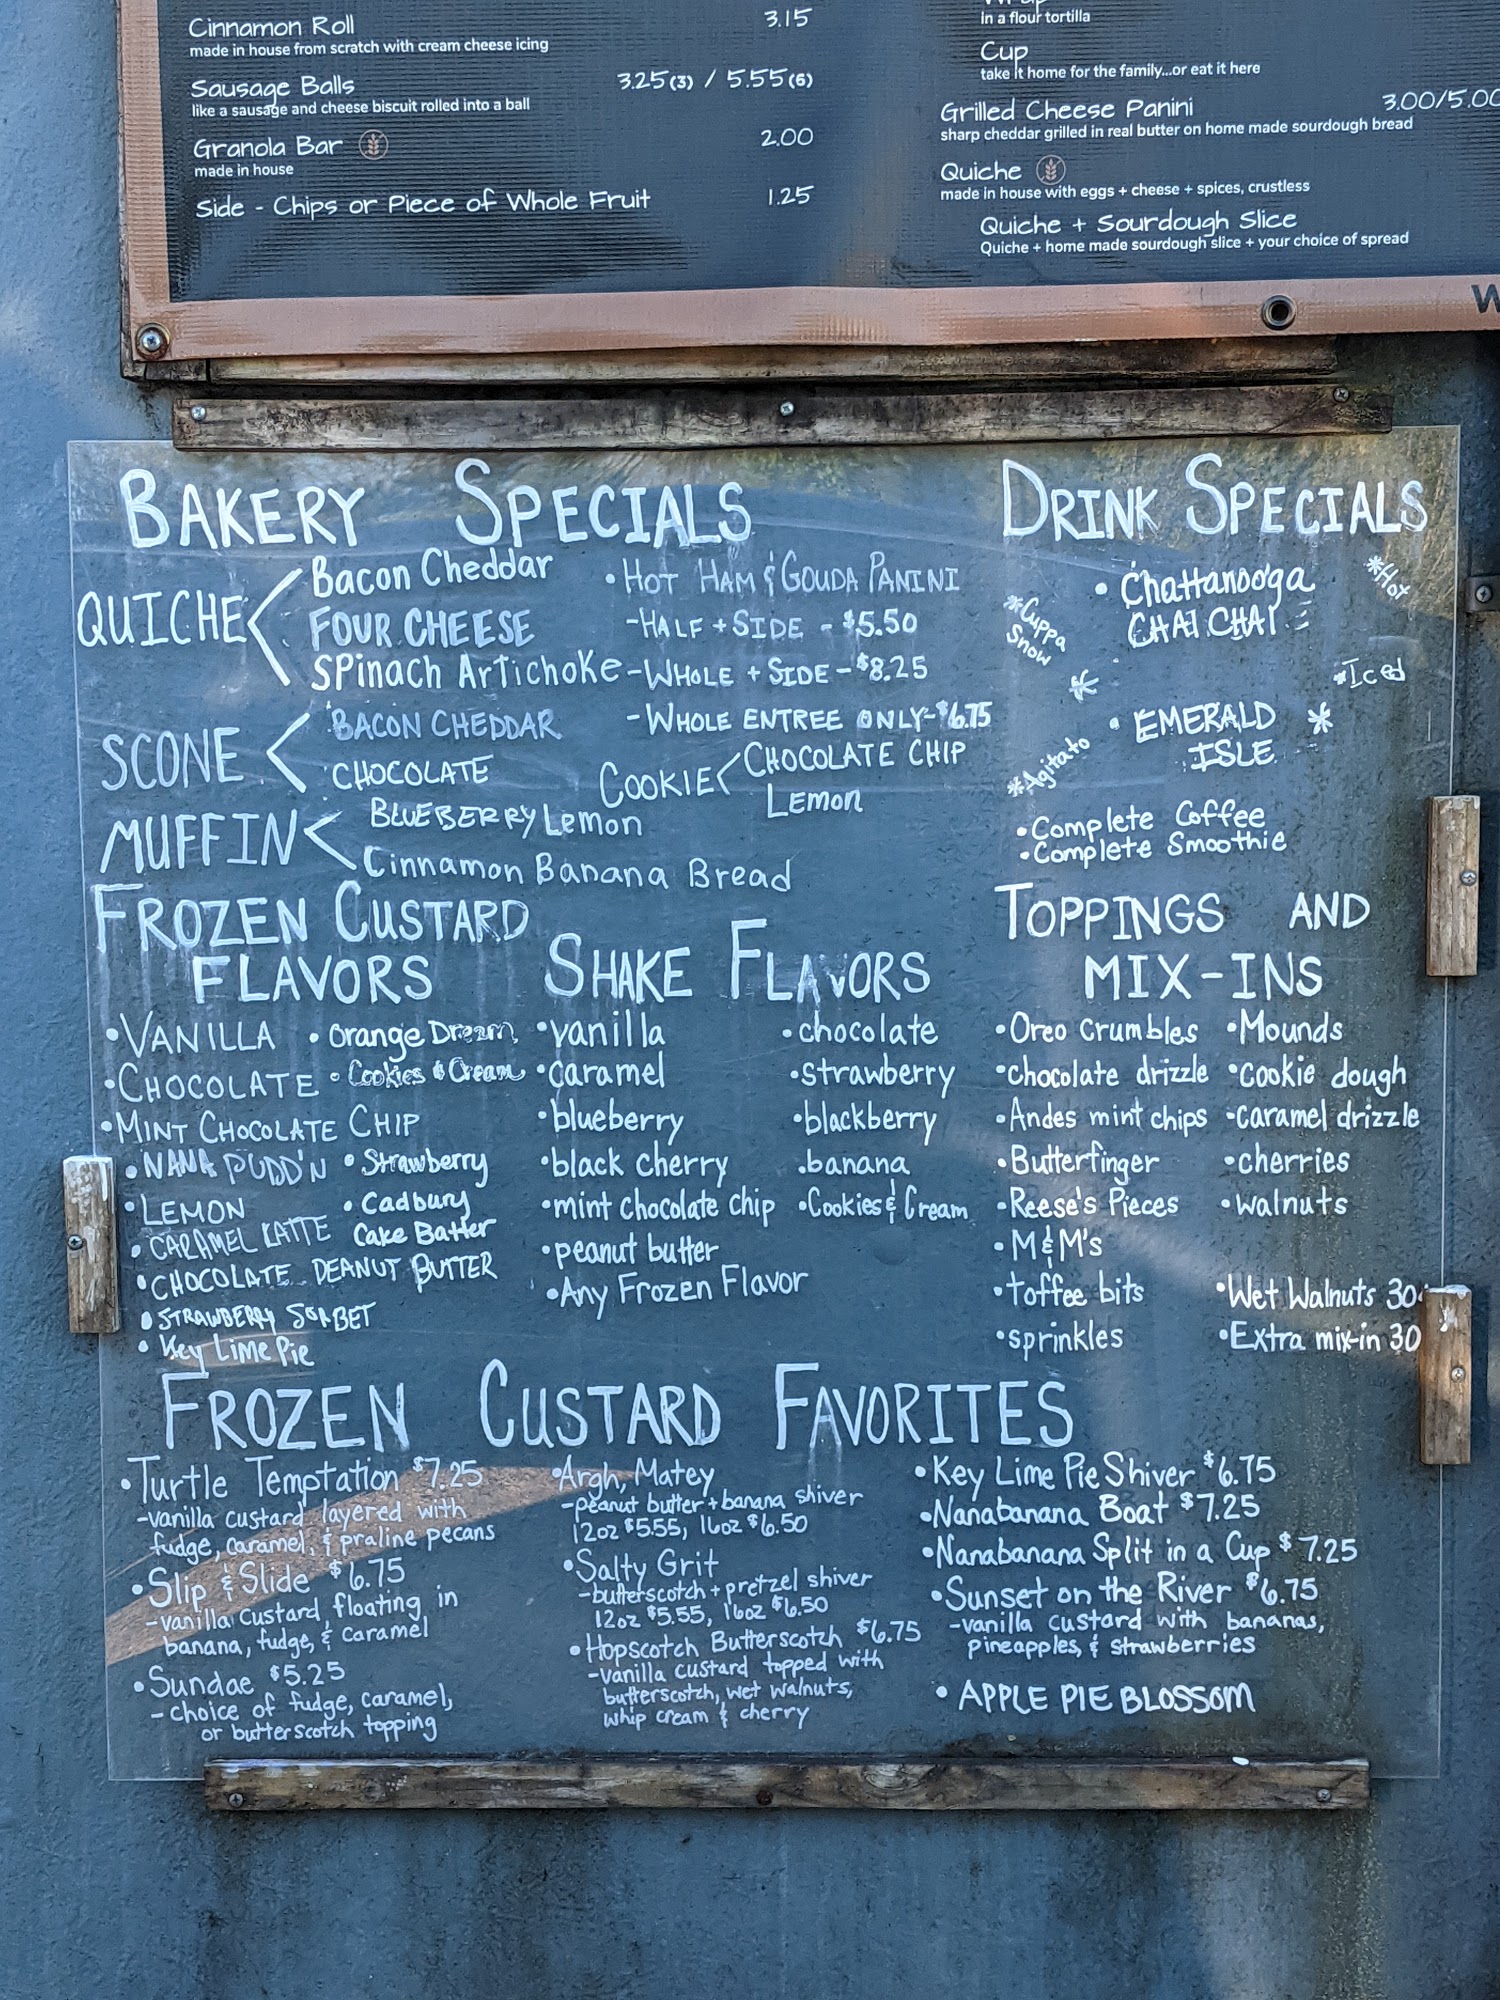 Cinnamon Roll 3.15
made in house from scratch with cream cheese icing
Sausage Balls 3.25(3) / 5.55(6)
like a sausage and cheese biscuit rolled into a ball
Granola Bar 2.00
made in house
Side - Chips or Piece of Whole Fruit 1.25
in a flour tortilla
Cup
take it home for the family...or eat it here
Grilled Cheese Panini 3.00/5.00
sharp cheddar grilled in real butter on home made sourdough bread
Quiche
made in house with eggs + cheese + spices, crustless
Quiche + Sourdough Slice
Quiche + home made sourdough slice + your choice of spread
W
BAKERY SPECIALS
QUICHE
Bacon Cheddar
FOUR CHEESE
Spinach Artichoke
SCONE
BACON CHEDDAR
CHOCOLATE
MUFFIN
BLUEBERRY Lemon
Cinnamon Banana Bread
• HOT HAM & GOUDA PANINI
-HALF + SIDE - $5.50
-WHOLE + SIDE - $8.25
-WHOLE ENTREE ONLY - $6.75
COOKIE
CHOCOLATE CHIP
Lemon
DRINK SPECIALS
• Chattanooga
CHAI CHAI
*Hot
*Cuppa
Snow
*Iced
• EMERALD
ISLE
*Agitato
• Complete Coffee
• Complete Smoothie
FROZEN CUSTARD
FLAVORS
• VANILLA • Orange Dream
• CHOCOLATE • Cookies & Cream
• MINT CHOCOLATE CHIP
• NANA PUDD'N • Strawberry
• LEMON • Cadbury
• CARAMEL LATTE Cake Batter
• CHOCOLATE PEANUT BUTTER
• STRAWBERRY SORBET
• Key Lime Pie
SHAKE FLAVORS
• vanilla • chocolate
• caramel • strawberry
• blueberry • blackberry
• black cherry • banana
• mint chocolate chip • Cookies & Cream
• peanut butter
• Any Frozen Flavor
TOPPINGS AND
MIX-INS
• Oreo crumbles • Mounds
• chocolate drizzle • cookie dough
• Andes mint chips • caramel drizzle
• Butterfinger • cherries
• Reese's Pieces • walnuts
• M&M's
• toffee bits • Wet Walnuts 30
• sprinkles • Extra mix-in 30
FROZEN CUSTARD FAVORITES
• Turtle Temptation $7.25
-vanilla custard layered with
fudge, caramel, & praline pecans
• Slip & Slide $6.75
-vanilla custard floating in
banana, fudge, & caramel
• Sundae $5.25
- choice of fudge, caramel,
or butterscotch topping
• Argh, Matey
-peanut butter + banana shiver
12oz $5.55, 16oz $6.50
• Salty Grit
-butterscotch + pretzel shiver
12oz $5.55, 16oz $6.50
• Hopscotch Butterscotch $6.75
-vanilla custard topped with
butterscotch, wet walnuts,
whip cream & cherry
• Key Lime Pie Shiver $6.75
• Nanabanana Boat $7.25
• Nanabanana Split in a Cup $7.25
• Sunset on the River $6.75
-vanilla custard with bananas,
pineapples, & strawberries
• APPLE PIE BLOSSOM